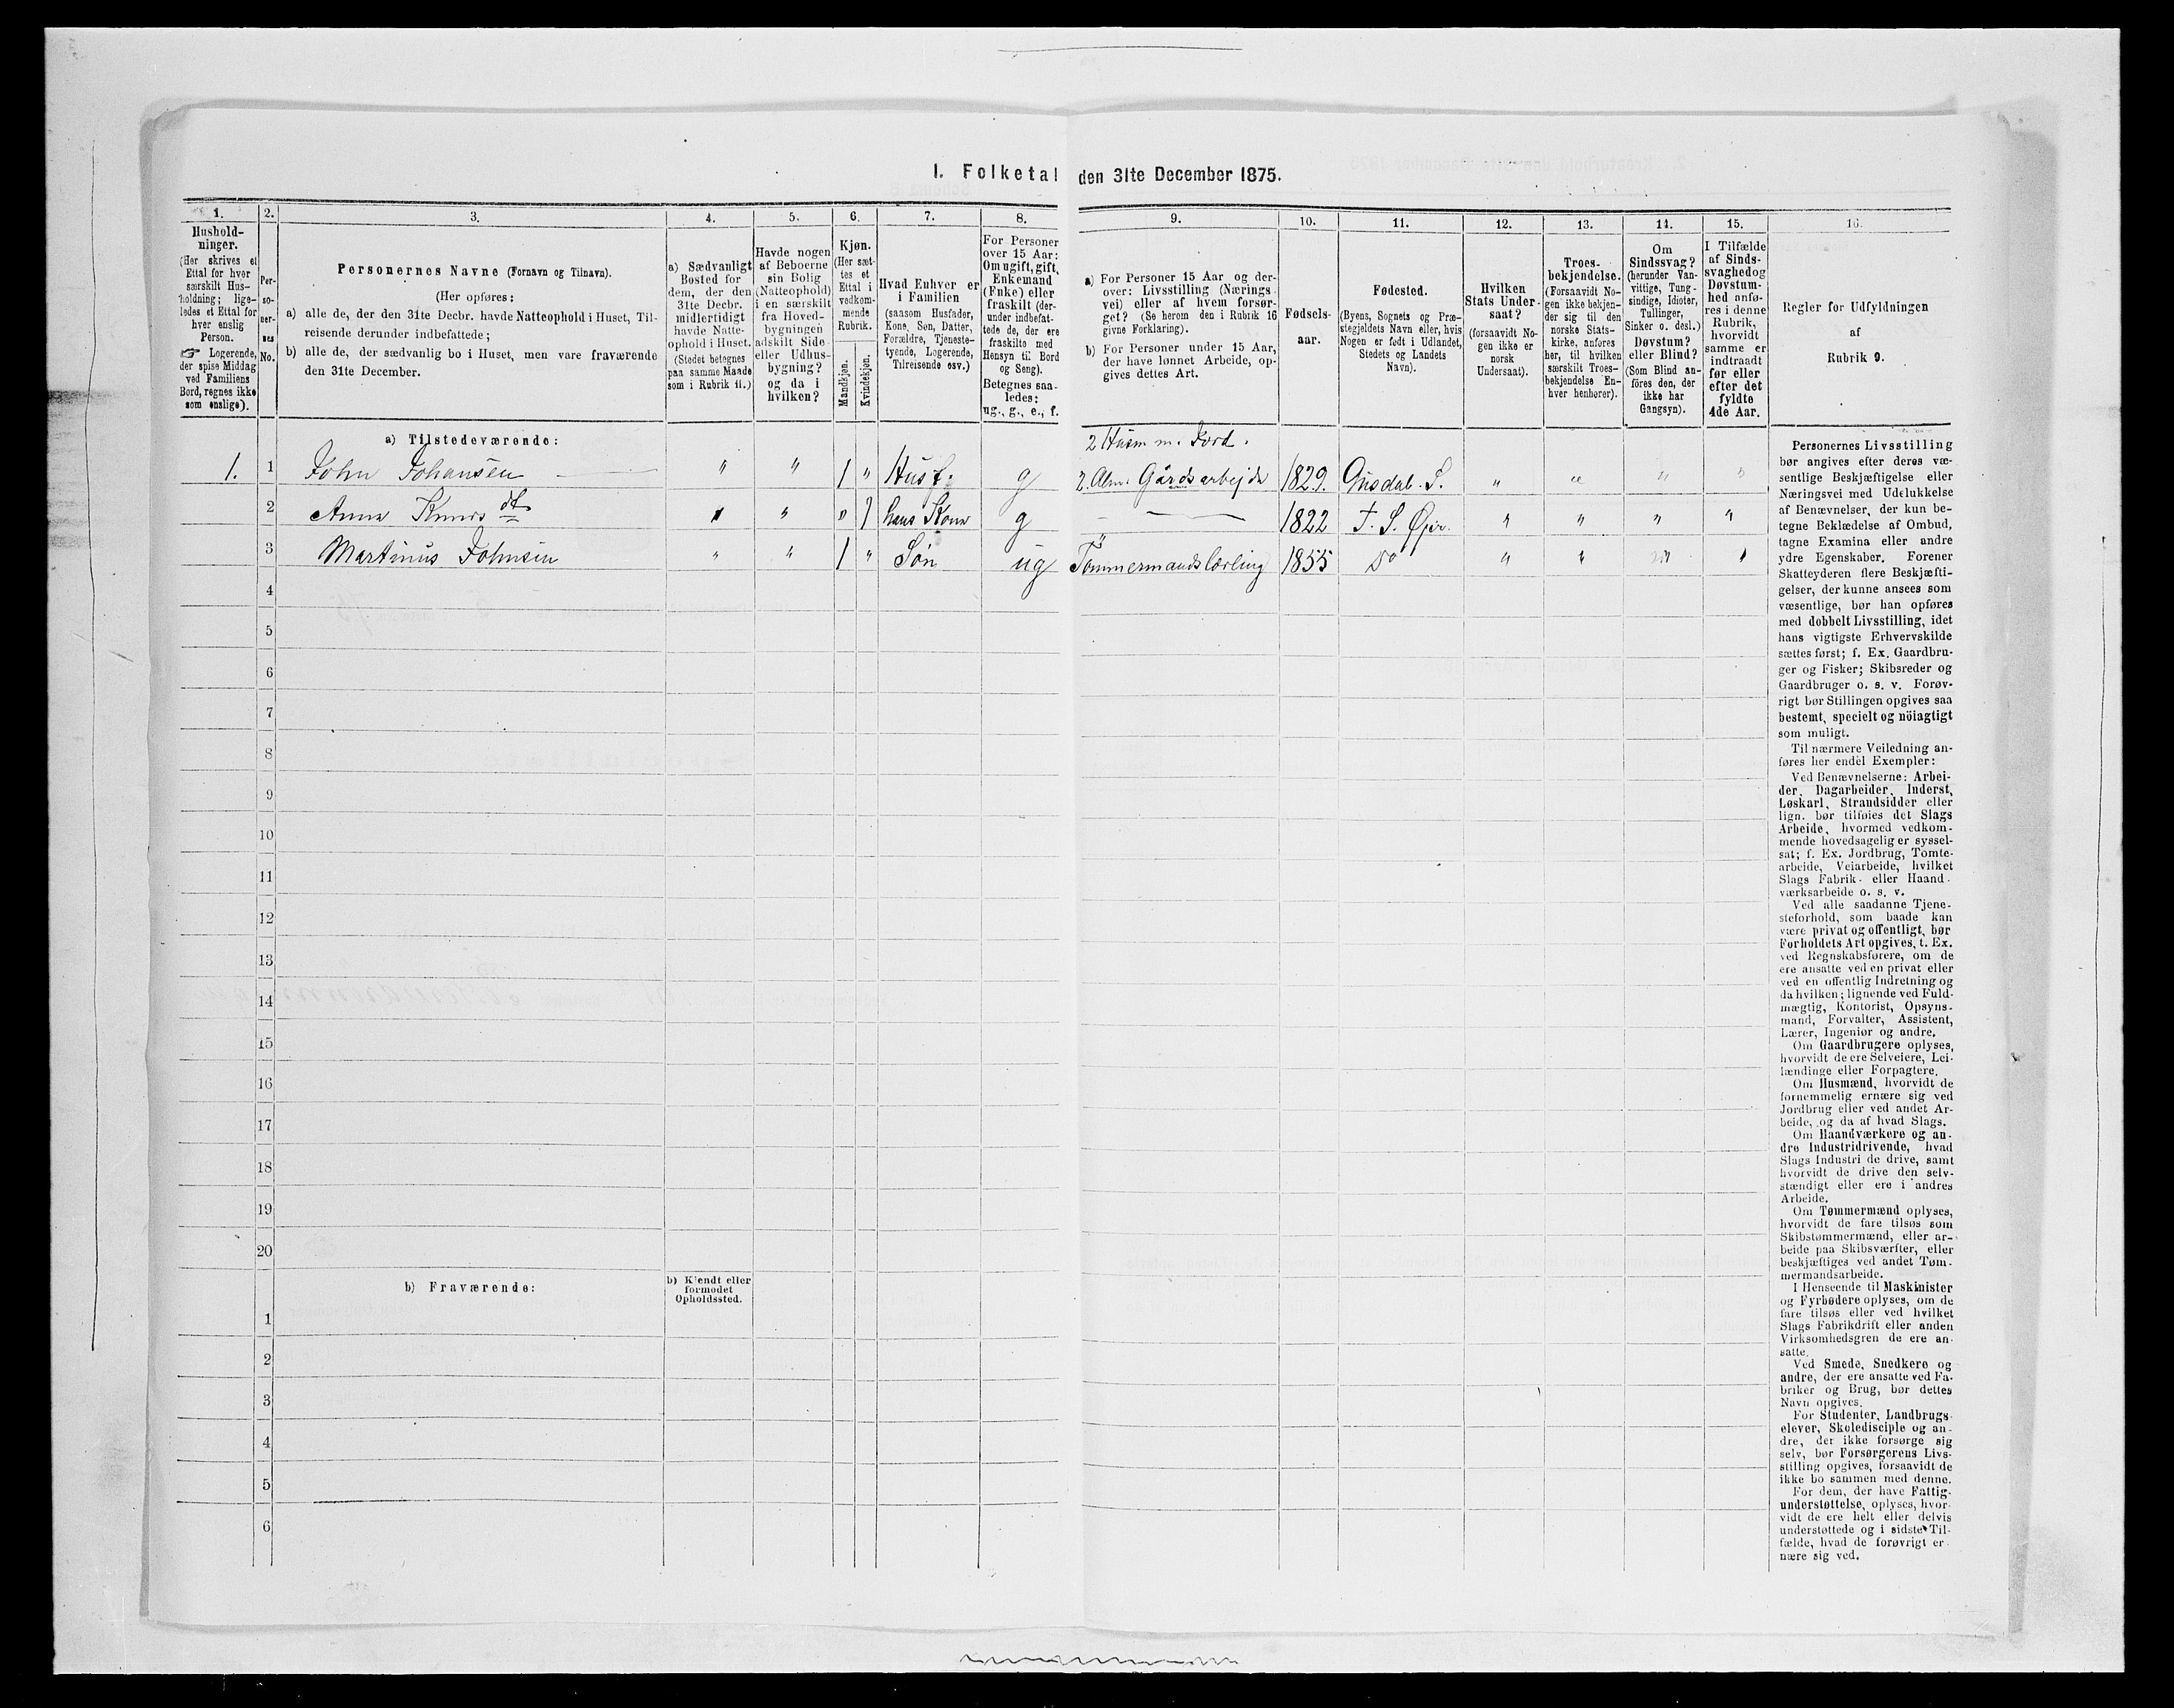 1. Folketal den 31te December 1875.
1.
Hushold-
ninger.
(Her skrives et
Ettal for hver
særskilt Hus-
holdning; lige-
ledes et Ettal for
hver enslig
Person.
☞ Logerende,
der spise Middag
ved Familiens
Bord, regnes ikke
som enslige).
2.
Per-
so-
ner-
nes
No.
3.
Personernes Navne (Fornavn og Tilnavn).
(Her opføres:
a) alle de, der den 31te Decbr. havde Natteophold i Huset, Til-
reisende derunder indbefattede;
b) alle de, der sædvanlig bo i Huset, men vare fraværende
den 31te December.
4.
a) Sædvanligt
Bosted for
dem, der den
31te Decbr.
midlertidigt
havde Natte-
ophold i Huset.
(Stedet betegnes
paa samme Maade
som i Rubrik 11.)
5.
Havde nogen
af Beboerne
sin Bolig
(Natteophold)
i en særskilt
fra Hoved-
bygningen
adskilt Side-
eller Udhus-
bygning?
og da i
hvilken?
6.
Kjøn.
(Her sæt-
tes et
Ettal i
vedkom-
mende
Rubrik.
Mandkjøn.
Kvindekjøn.
7.
Hvad Enhver er
i Familien
(saasom Husfader,
Kone, Søn, Datter,
Forældre, Tjeneste-
tyende, Logerende,
Tilreisende osv.)
8.
For Personer
over 15 Aar:
Om ugift, gift,
Enkemand
(Enke) eller
fraskilt (der-
under indbefat-
tede de, der ere
fraskilte med
Hensyn til Bord
og Seng).
Betegnes saa-
ledes:
ug., g., e., f.
9.
a) For Personer 15 Aar og der-
over: Livsstilling (Nærings-
vei) eller af hvem forsør-
get? (Se herom den i Rubrik 16
givne Forklaring).
b) For Personer under 15 Aar,
der have lønnet Arbeide, op-
gives dettes Art.
10.
Fødsels-
aar.
11.
Fødested.
(Byens, Sognets og Præ-
stegjeldets Navn eller, hvis
Nogen er født i Udlandet,
Stedets og Landets
Navn).
12.
Hvilken
Stats Under-
saat?
(forsaavidt No-
gen ikke er
norsk
Undersaat).
13.
Troes-
bekjendelse.
(Forsaavidt No-
gen ikke bekjen-
der sig til den
norske Stats-
kirke, anføres
her, til hvilken
særskilt Troes-
bekjendelse En-
hver henhører).
14.
Om
Sindssvag?
(herunder Van-
vittige, Tung-
sindige, Idioter,
Tullinger,
Sinker o. desl.)
Døvstum?
eller Blind?
(Som Blind an-
føres den, der
ikke har
Gangsyn).
15.
I Tilfælde
af Sinds-
svaghed og
Døvstum-
hed anfø-
res i denne
Rubrik,
hvorvidt
samme er
indtraadt
før eller
efter det
fyldte
4de Aar.
16.
Regler for Udfyldningen
af
Rubrik 9.
a) Tilstedeværende:
2 Husm m. Jord.
1. 1 John Johansen " " 1 " Husf. g 2. Alm. Gårdsarbejde 1829. Gusdal. S. " " " "
2 Anna Knuds dt " " " 1 hans Kone g 1822 F. S. " " " "
3 Martinus Johnsen " " 1 " Søn ug Tømmermandslærling 1855 Do " " " "
4
5
6
7
8
9
10
11
12
13
14
15
16
17
18
19
20
b) Fraværende:
b) Kjendt eller
formodet
Opholdssted.
1
2
3
4
5
6
Personernes Livsstilling
bør angives efter deres væ-
sentlige Beskjæftigelse eller
Næringsvei med Udelukkelse
af Benævnelser, der kun be-
tegne Beklædelse af Ombud,
tagne Examina eller andre
ydre Egenskaber. Forener
Skatteyderen flere Beskjæfti-
gelser, der kunne ansees som
væsentlige, bør han opføres
med dobbelt Livsstilling, idet
hans vigtigste Erhvervskilde
sættes først; f. Ex. Gaardbru-
ger og Fisker; Skibsreder og
Gaardbruger o. s. v. Forøv-
rigt bør Stillingen opgives saa
bestemt, specielt og nöiagtigt
som muligt.
Til nærmere Veiledning an-
føres her endel Exempler:
Ved Benævnelserne: Arbei-
der, Dagarbeider, Inderst,
Løskarl, Strandsidder eller
lign. bør tilføies det Slags
Arbeide, hvormed vedkom-
mende hovedsagelig er syssel-
sat; f. Ex. Jordbrug, Tomte-
arbeide, Veiarbeide, hvilket
Slags Fabrik- eller Haand-
værksarbeide o. s. v.
Ved alle saadanne Tjene-
steforhold, som baade kan
være privat og offentligt, bør
Forholdets Art opgives, t. Ex.
ved Regnskabsførere, om de
ere ansatte ved en privat eller
ved en offentlig Indretning og
da hvilken; lignende ved Fuld-
mægtig, Kontorist, Opsyns-
mand, Forvalter, Assistent,
Lærer, Ingeniør og andre.
Om Gaardbrugere oplyses,
hvorvidt de ere Selveiere, Lei-
lændinge eller Forpagtere.
Om Husmænd, hvorvidt de
fornemmelig ernære sig ved
Jordbrug eller ved andet Ar-
beide, og da af hvad Slags.
Om Haandværkere og an-
dre Industridrivende, hvad
Slags Industri de drive, samt
hvorvidt de drive den selv-
stændigt eller ere i andres
Arbeide.
Om Tømmermænd oplyses,
hvorvidt de fare tilsøs som
Skibstømmermænd, eller ar-
beide paa Skibsværfter, eller
beskjæftiges ved andet Tøm-
mermandsarbeide.
I Henseende til Maskinister
og Fyrbødere oplyses, om de
fare tilsøs eller ved hvilket
Slags Fabrikdrift eller anden
Virksomhedsgren de ere an-
satte.
Ved Smede, Snedkere og
andre, der ere ansatte ved Fa-
briker og Brug, bør dettes
Navn opgives.
For Studenter, Landbrugs-
elever, Skoledisciple og an-
dre, der ikke forsørge sig
selv, bør Forsørgerens Livs-
stilling opgives, forsaavidt de
ikke bo sammen med denne.
For dem, der have Fattig-
understøttelse, oplyses, hvor-
vidt de ere helt eller delvis
understøttede og i sidste Til-
fælde, hvad de forøvrigt er-
nære sig ved.